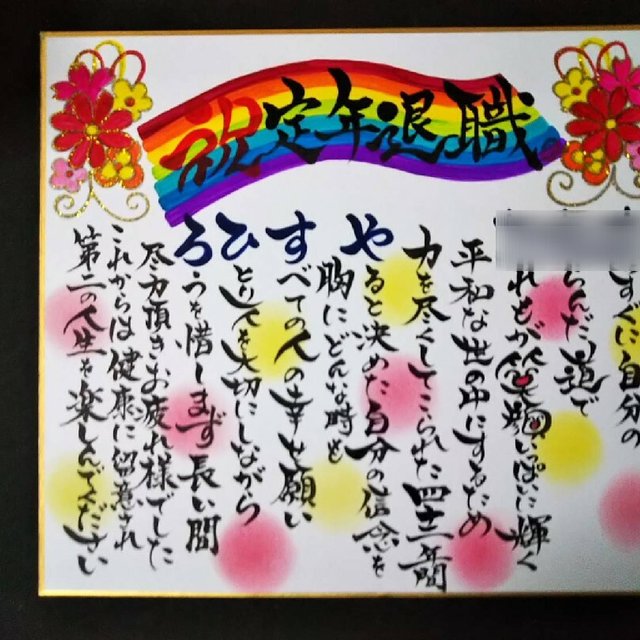 祝定年退職
すぐに自分の
らんだ道で
れもが笑顔いっぱいに輝く
平和な世の中にするため
力を尽くしてこられた四十二年間
やると決めた自分の信念を
胸にどんな時も
すべての人の幸せ願い
ひとりひとりを大切にしながら
ろうを惜しまず長い間
尽力頂きお疲れ様でした
これからは健康に留意され
第二の人生を楽しんでください